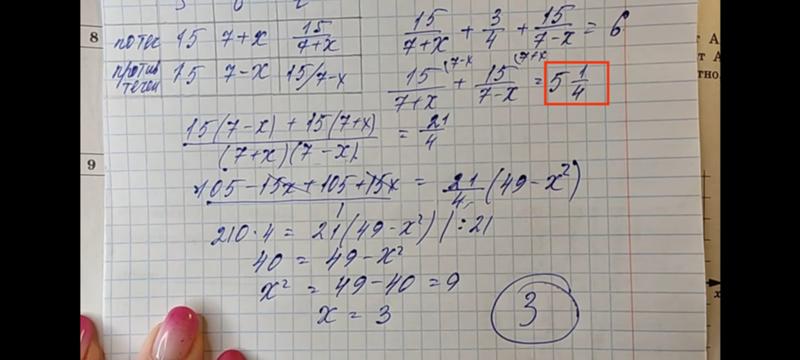 8
по теч 15 7+x 15/(7+x)
против течен 15 7-x 15/7-x
15/(7+x) + 3/4 + 15/(7-x) = 6
15/(7+x) (7-x + 15/(7-x) (7+x = 5 1/4
(15(7-x) + 15(7+x))/((7+x)(7-x)) = 21/4
9
(105-15x+105+15x)/1 = 21/4 (49-x²)
210·4 = 21(49-x²) |:21
40 = 49-x²
x² = 49-40 = 9
x = 3
3